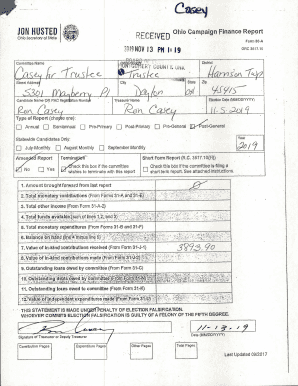 Casey
JON HUSTED
Ohio Secretary of State
RECEIVED
Ohio Campaign Finance Report
Form 30-A
ORC 3517.10
2019 NOV 13 PM 1:19
BOARD OF
MONTGOMERY COUNTY, OHIO
Committee Name
Casey for Trustee
Trustee
District
Harrison Twp
5301 Mayberry Pl
City
Dayton
State
Zip
45415
Candidate Name OR PAC Registration Number
Ron Casey
Treasurer Name
Ron Casey
Election Date (MM/DD/YYYY)
11-5-2019
Type of Report (choose one):
Annual Semiannual Pre-Primary Post-Primary Pre-General Post-General
Statewide Candidates Only:
July Monthly August Monthly September Monthly
Year
2019
Amended Report
No Yes
Termination
Check this box if the committee
wishes to terminate with this report
Short Form Report (R.C. 3517.10(H))
Check this box if the committee is filing a
short form report. See attached instructions.
1. Amount brought forward from last report
0
2. Total monetary contributions (From Form 31-A and 31-E)
3. Total other income (From Form 31-A-2)
4. Total funds available (sum of lines 1, 2, and 3)
5. Total monetary expenditures
6. Balance on hand (line 4 minus line 5)
7. Value of in-kind contributions received (From Form 31-J-1)
3893.90
8. Value of in-kind contributions made (From Form 31-J-2)
9. Outstanding loans owed by committee (From Form 31-C)
10. Outstanding debts owed by committee
11. Outstanding loans owed to committee
12. Value of independent expenditures made
THIS STATEMENT IS MADE UNDER PENALTY OF ELECTION FALSIFICATION.
WHOEVER COMMITS ELECTION FALSIFICATION IS GUILTY OF A FELONY OF THE FIFTH DEGREE.
Ron Casey
11-13-19
Signature of Treasurer or Deputy Treasurer
Date (MM/DD/YYYY)
Contribution Pages
Expenditure Pages
Other Pages
Total Pages
Last Updated 08/2017